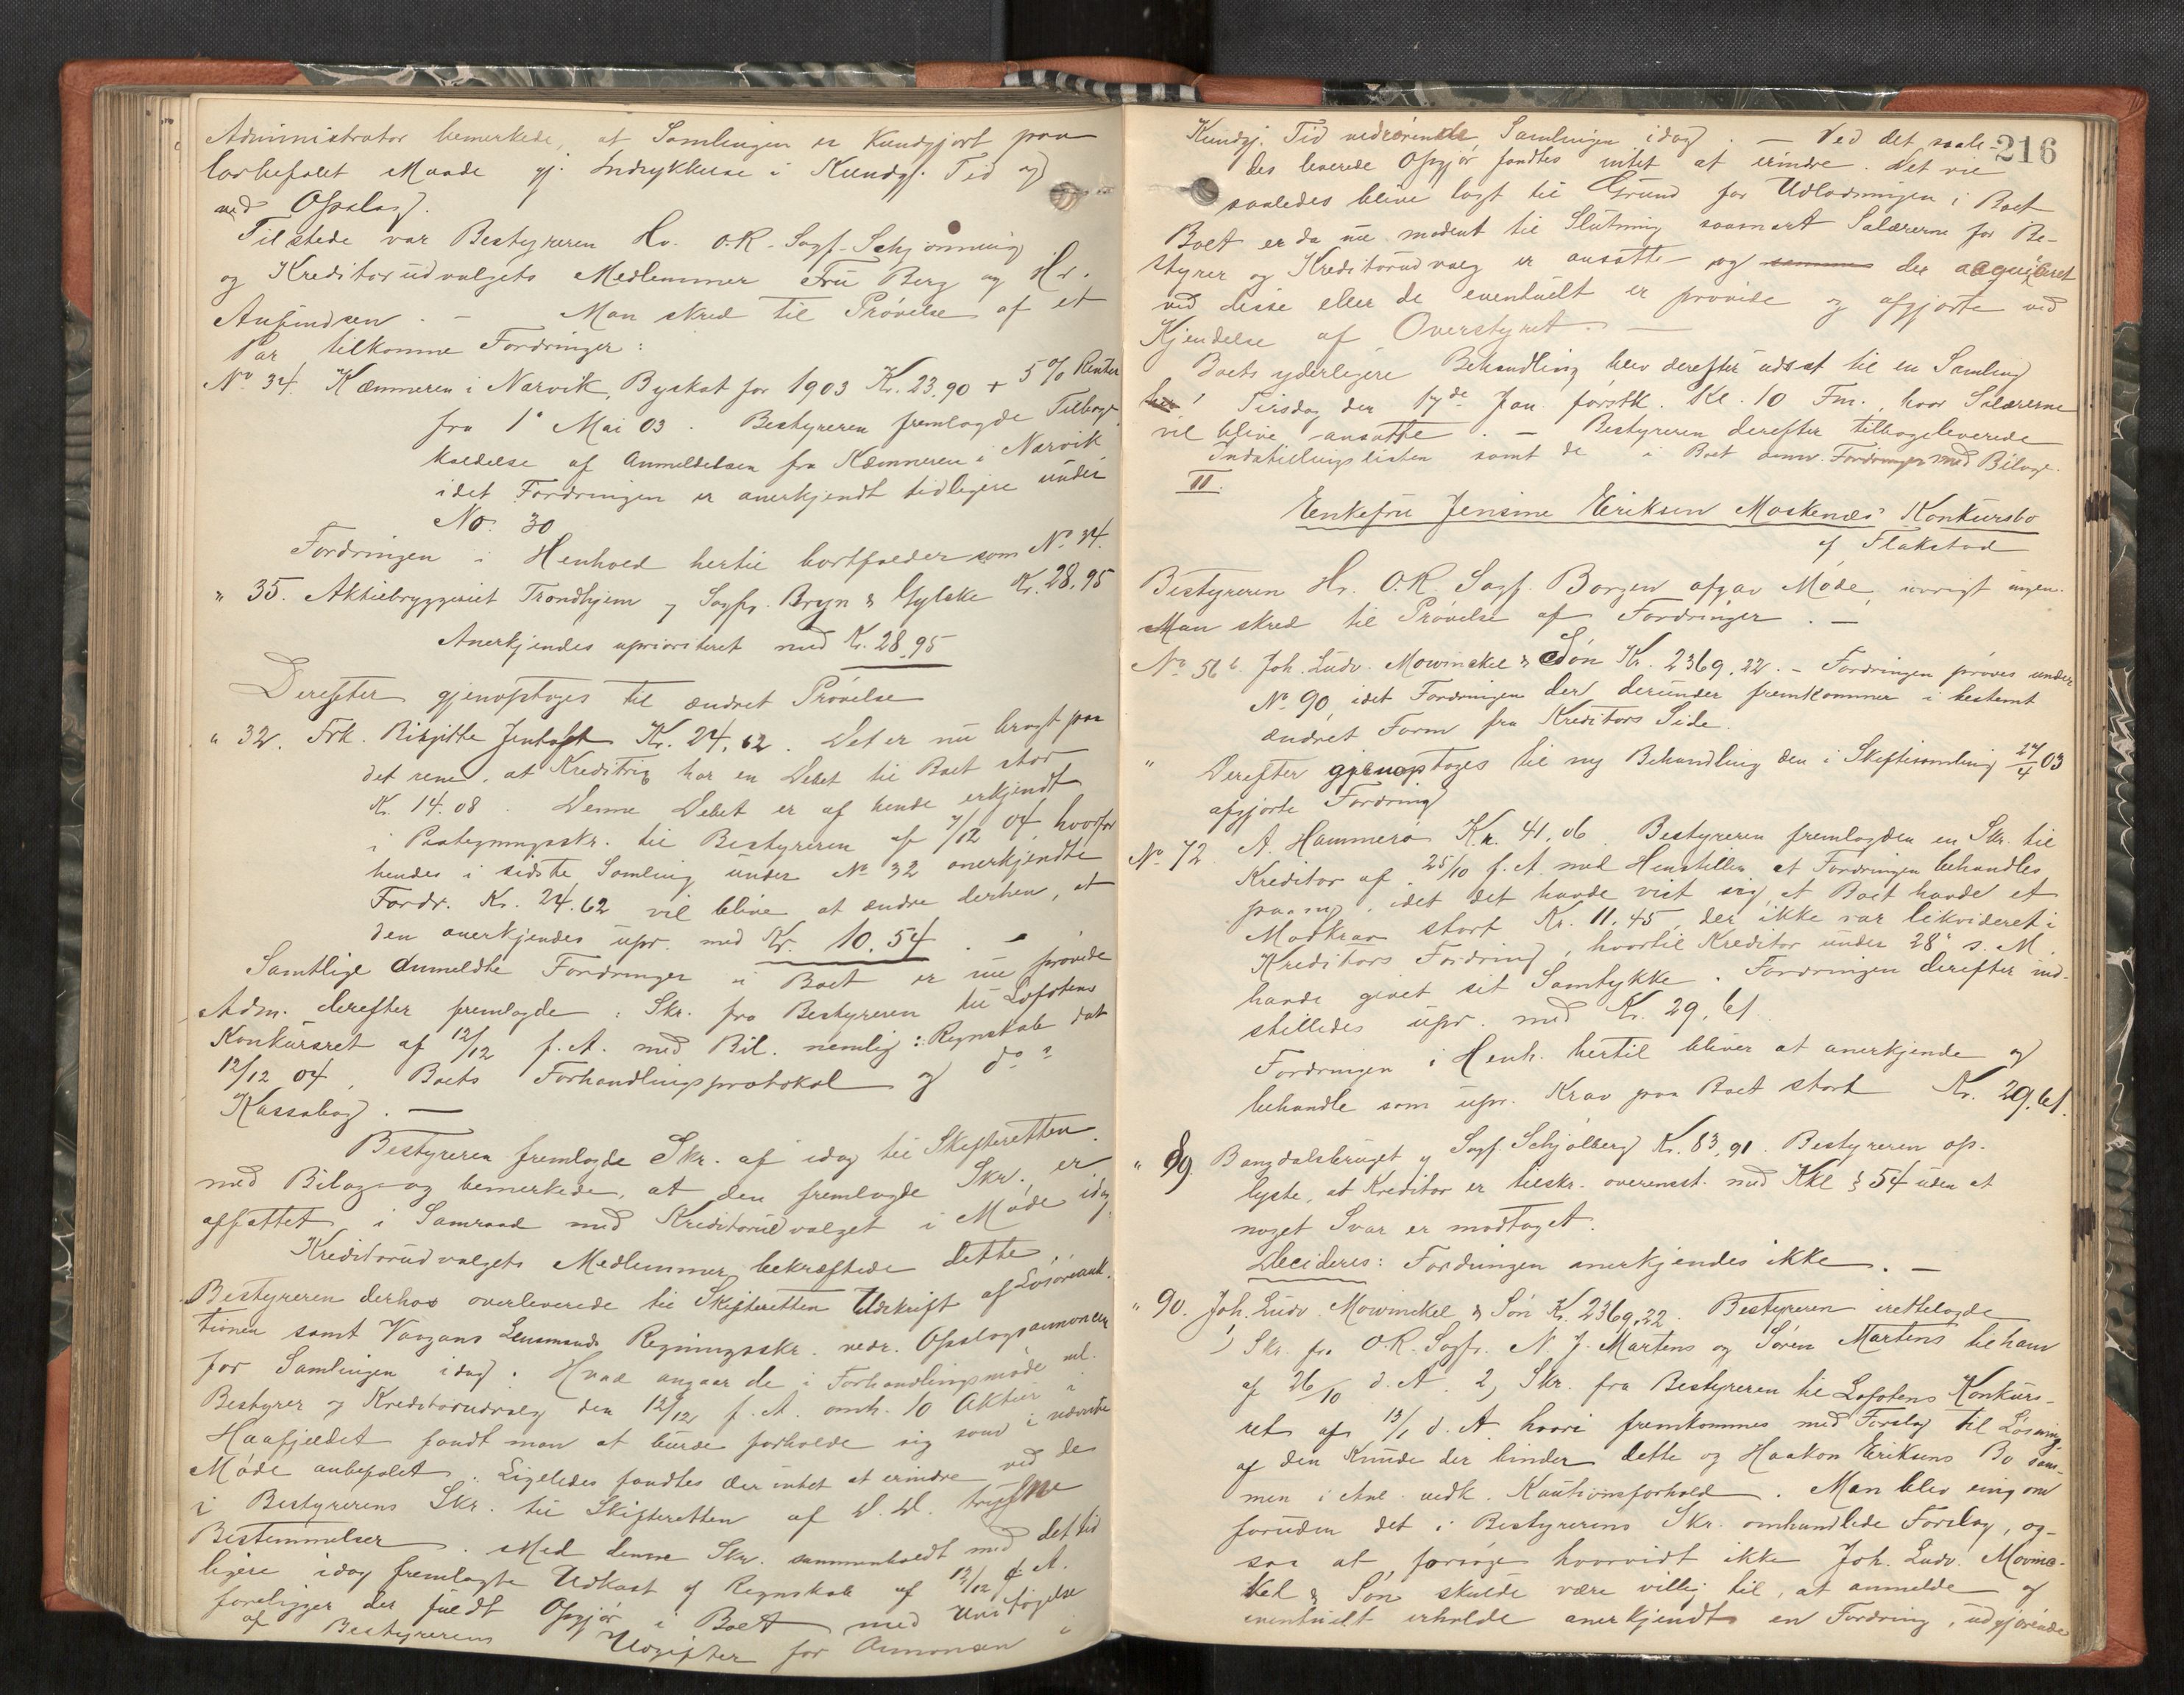 Administrator bemerkede, at Samlingen er Kundgjort paa
lovbefalet Maade gj. Indrykkelse i Kundgj. Tid og
ved Opslag.
Tilstede var Bestyreren Hr. O.R. Sagf. Schjønning
og Kreditorudvalgets Medlemmer Fru Berg og Hr.
Aufindsen. — Man skred til Prøvelse af et
Par tilkomne Fordringer:
No 34. Kæmneren i Narvik, Byskat for 1903 Kr. 23.90 + 5 % Renter
fra 1' Mai 03. Bestyreren fremlagde Tilbage-
kaldelse af Anmeldelsen fra Kæmneren i Narvik
idet Fordringen er anerkjendt tidligere under
No. 30
Fordringen i Henhold hertil bortfalder som No. 34.
" 35. Aktiebryggeriet Trondhjem v Sagfr. Bryn & Gylche Kr. 28.95
Anerkjendes uprioriteret med Kr. 28.95
Derefter gjenoptages til ændret Prøvelse
" 32. Frk. Birgitte Jentoft Kr. 24.62. Det er nu bragt paa
det rene, at Kreditrix har en Debet til Boet stor
Kr. 14.08. Denne Debet er af hende erkjendt
i Paategningsskr. til Bestyreren af 7/12 04, hvorfor
hendes i sidste Samling under No 32 anerkjendte
Fordr. Kr. 24.62 vil blive at ændre derhen, at
den anerkjendes upr. med Kr. 10.54. —
Samtlige anmeldte Fordringer i Boet er nu prøvede
Adm. derefter fremlagde: Skr. fra Bestyreren til Lofotens
Konkursret af 12/12 f.A. med Bil. nemlig: Regnskab dat
12/12 04, Boets Forhandlingsprotokol og do
Kassabog. —
Bestyreren fremlagde Skr. af idag til Skifteretten
med Bilag og bemerkede, at den fremlagde Skr., er
affattet i Samraad med Kreditorudvalget i Møde idag.
Kreditorudvalgets Medlemmer bekræftede dette.
Bestyreren derhos overleverede til Skifteretten Udskrift af Løsøreauk-
tionen samt Vaagans Lensmands Regningsskr. vedr. Opslagsannoncen
for Samlingen idag. Hvad angaar de i Forhandlingsmøde ml.
Bestyrer og Kreditorudvalg den 12/12 f.A. omh. 10 Aktier i
Haafjeldet fandt man at burde forholde sig som i nævnte
Møde anbefalet. Ligeledes fandtes der intet at erindre ved de
i Bestyrerens Skr. til Skifteretten af D.D. trufne
Bestemmelser. Med denne Skr. sammenholdt med det tid
ligere idag fremlagte Udkast af Regnskab af 12/12 f.A.
foreligger der fuldt Opgjør i Boet med Undtagelse
af Bestyrerens Udgifter for Annoncen i
216
Kundgj. Tid vedrørende Samlingen idag. — Ved det saale-
des leverede Opgjør fandtes intet at erindre. Det vil
saaledes blive lagt til Grund for Udlodningen i Boet
Boet er da nu modent til Slutning saasnart Salærerne for Be-
styrer og Kreditorudvalg er ansatte og der acquieseret
ved disse eller de eventuelt er prøvede og afgjorte ved
Kjendelse af Overstyret. —
Boets yderligere Behandling blev derefter udsat til en Samling
Tirsdag den 17de Jan. førstk. Kl. 10 Fm., hvor Salærerne
vil blive ansatte. — Bestyreren derefter tilbageleverede
Indstillingslisten samt de i Boet anm. Fordringer med Bilage.
II.
Enkefru Jensine Eriksen Moskenæs' Konkursbo
af Flakstad
Bestyreren Hr. O.R. Sagf. Borgen afgav Møde, iøvrigt ingen.
Man skred til Prøvelse af Fordringer. —
No 56 b. Joh. Ludv. Mowinckel & Søn Kr. 2369.22. — Fordringen prøves under
No 90, idet Fordringen der derunder fremkommer i bestemt
ændret Form fra Kreditors Side.
" Derefter gjenoptages til ny Behandling den i Skiftesamling 27/4 03
afgjorte Fordring
No 72. A. Hammerø Kr. 41.06. Bestyreren fremlagden en Skr. til
Kreditor af 25/10 f.A. med Henstillen at Fordringen behandles
paany, idet det havde vist sig, at Boet havde et
Modkrav stort Kr. 11.45, der ikke var likvideret i
Kreditors Fordring, hvortil Kreditor under 28' s.M.
havde givet sit Samtykke. Fordringen derefter ind-
stilledes upr. med Kr. 29.61.
Fordringen i Henh. hertil bliver at anerkjende og
behandle som upr. Krav paa Boet stort Kr. 29.61.
" 89 Bangdalsbruget v Sagf. Schjølberg Kr. 83.91. Bestyreren op-
lyste, at Kreditor er tilskr. overensst. med Kkl § 54 uden at
noget Svar er modtaget.
Decideres: Fordringen anerkjendes ikke. —
" 90. Joh. Ludv. Mowinckel & Søn Kr. 2369.22. Bestyreren irettelagde
1) Skr. fra O.R. Sagfr. N. J. Martens og Søren Martens til ham
af 26/10 d.A. 2) Skr. fra Bestyreren til Lofotens Konkurs-
ret af 13/1 d.A. hvori fremkommes med Forslag til Løsning
af den Knude der binder dette og Haakon Eriksens Bo sam-
men i Anl. vedk. Kautionsforhold. Man blev enig om
foruden det i Bestyrerens Skr. omhandlede Forslag, og-
saa at forsøge hvorvidt ikke Joh. Ludv. Mowinc-
kel & Søn skulde være villig til, at anmelde og
eventuelt erholde anerkjendt en Fordring, udgjørende